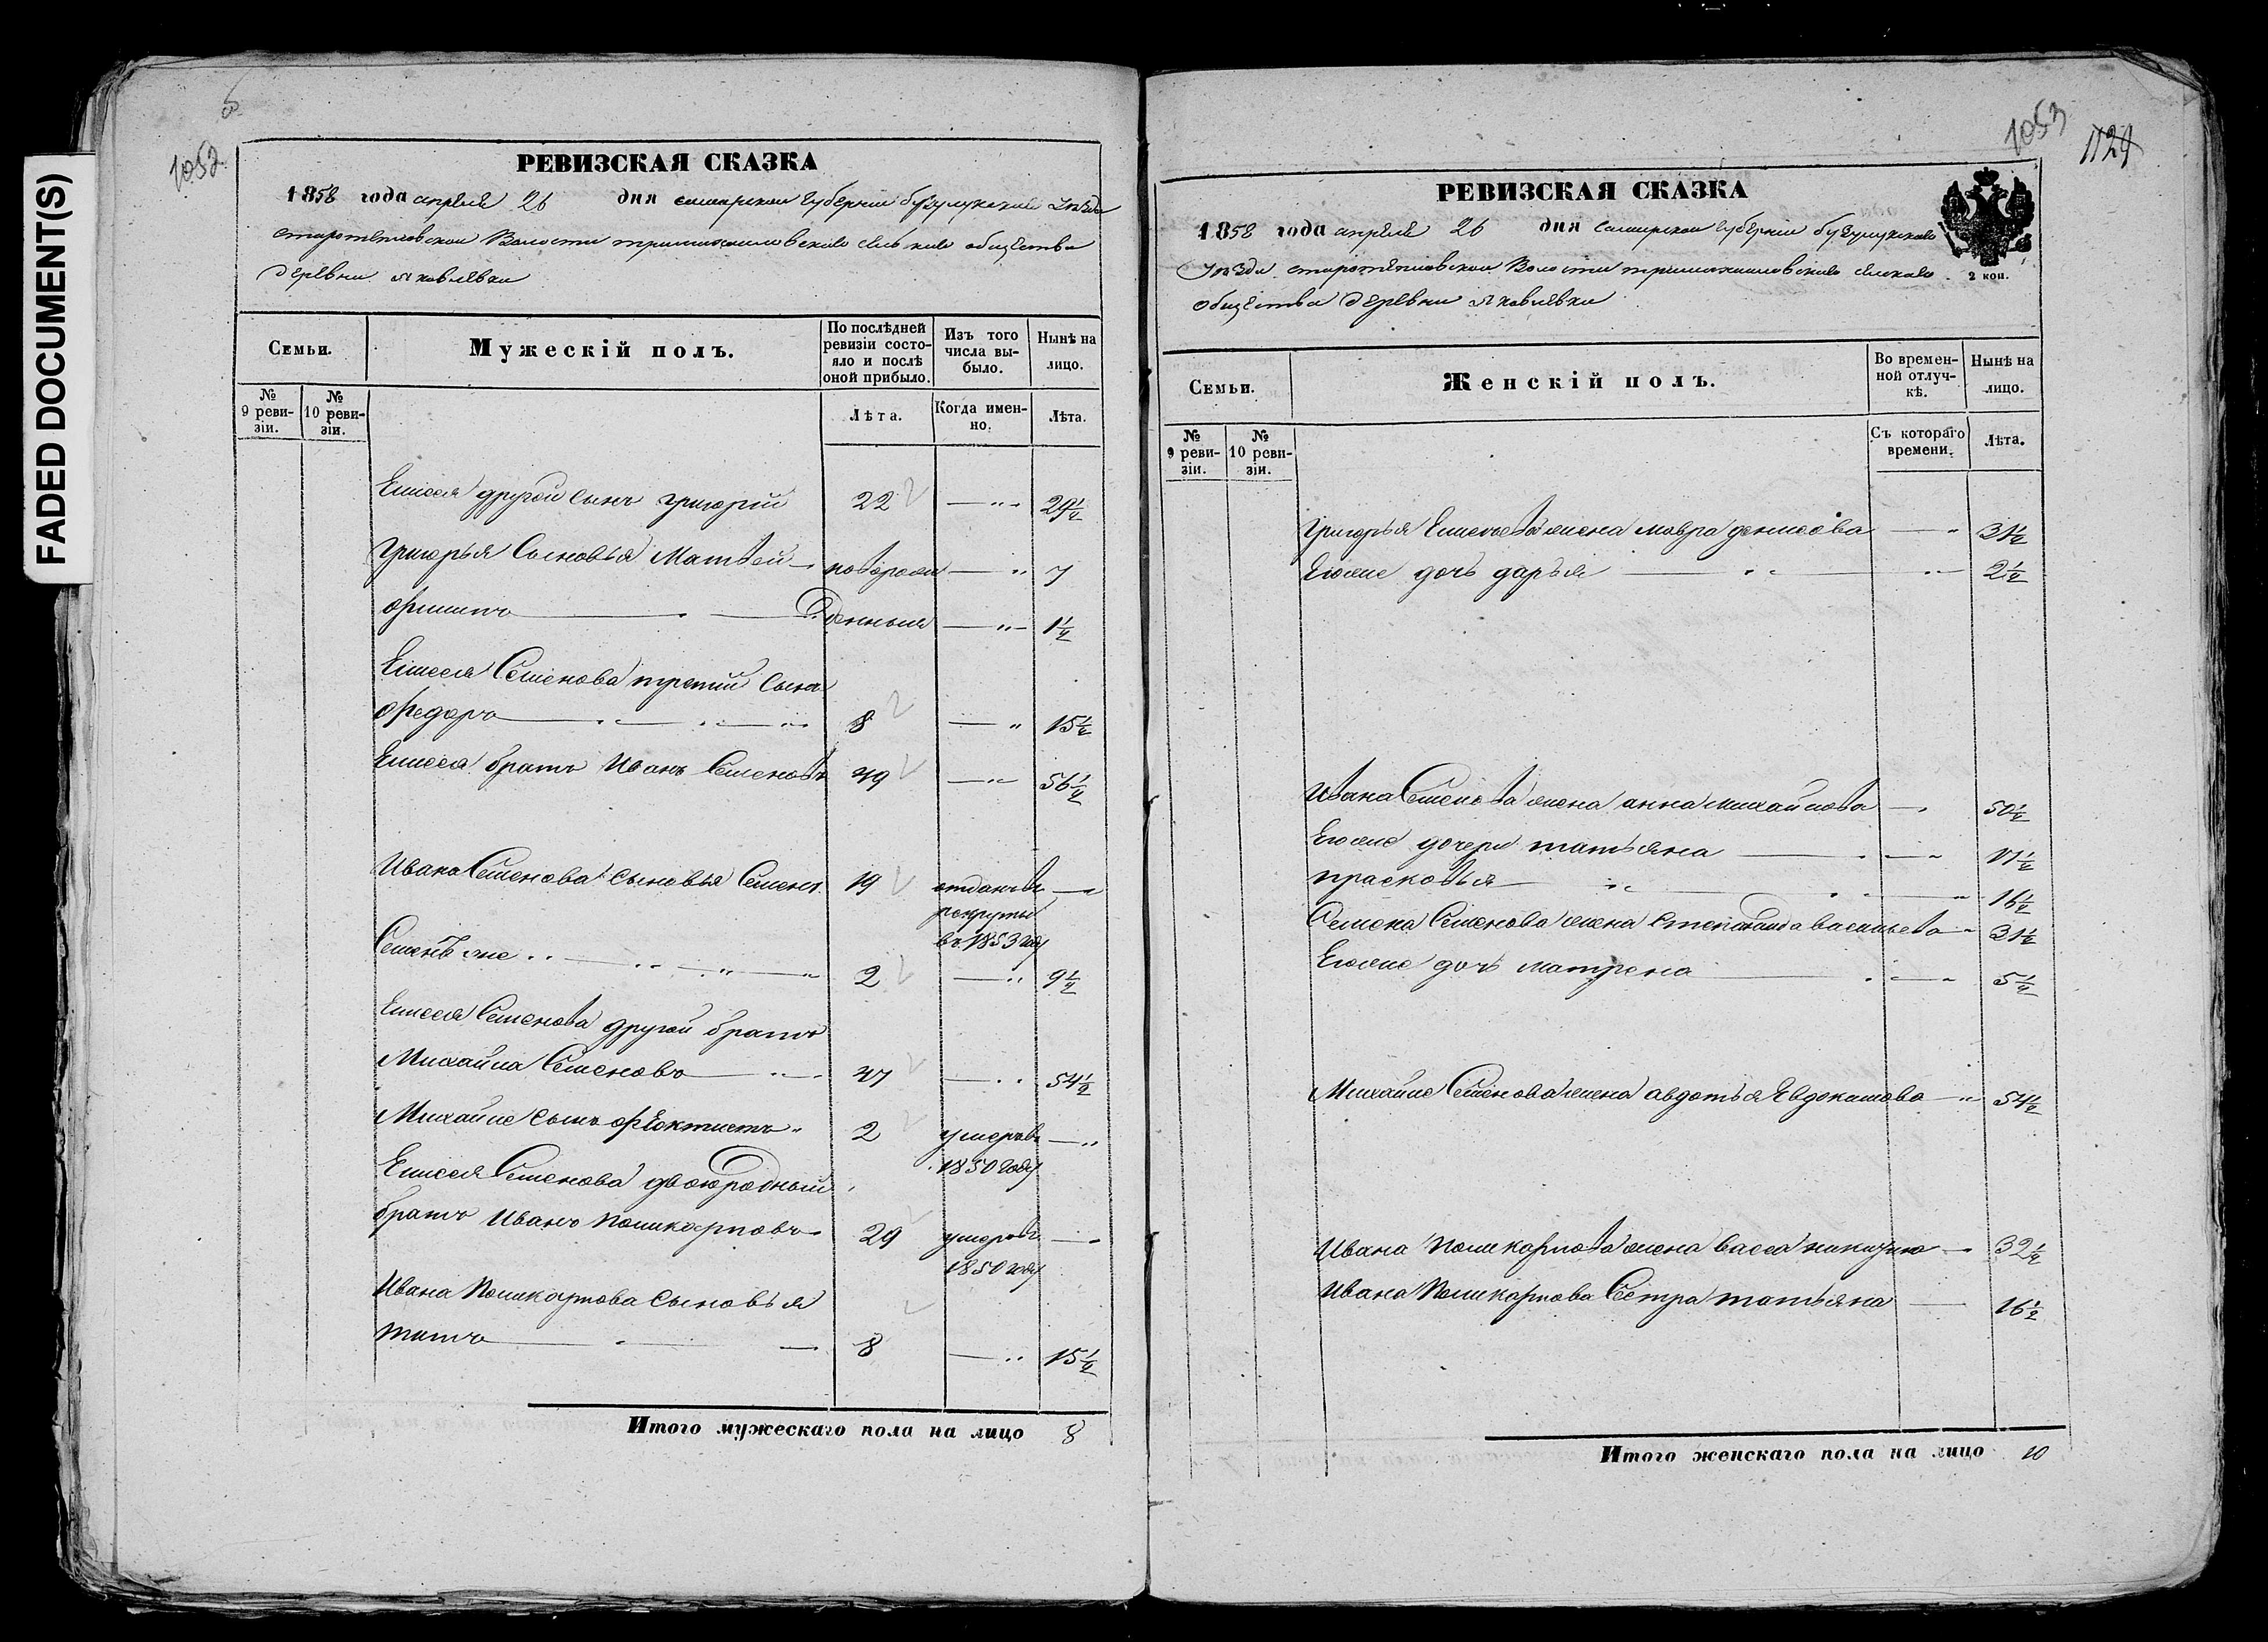 FADED DOCUMENT(S)
1052
РЕВИЗСКАЯ СКАЗКА
1858 года апреля 26 дня самарской губернии бузулукскаго уезда
Волости общества
деревни яковлевки
Семьи.
Мужескій полъ.
По послѣдней ревизіи состояло и послѣ оной прибыло.
Изъ того числа выбыло.
Нынѣ на лицо.
№ 9 ревизіи.
№ 10 ревизіи.
Лѣта.
Когда именно.
Лѣта.
Елисея другой сынъ григорій 22 — 29½
Григорья Сыновья Матвей — 7
филипъ — 1½
Елисея Семенова третий сынъ
федоръ — 8 — 15½
Елисея братъ Иванъ Семеновъ 49 — 56½
Ивана Семенова сыновья Семенъ 19 отданъ в —
рекруты
въ 1853 году
Семенъ же — 2 — 9½
Елисея Семенова другой братъ
Михайла Семеновъ — 47 — 54½
Михайлы сынъ фЕоктистъ 2 умеръ в —
1850 году
Елисея Семенова двоюродный
братъ Иванъ Поликарповъ 29 умеръ в —
1850 году
Ивана Поликарпова Сыновья
титъ — 8 — 15½
Итого мужескаго пола на лицо 8
1053
1124
РЕВИЗСКАЯ СКАЗКА
1858 года апреля 26 дня самарской губернии бузулукскаго
Уезда Волости
общества деревни яковлевки
2 коп.
Семьи.
Женскій полъ.
Во временной отлучкѣ.
Нынѣ на лицо.
№ 9 ревизіи.
№ 10 ревизіи.
Съ котораго времени.
Лѣта.
Григорья Елисеева жена мавра денисова — 31½
Егоже дочь дарья — 2½
Ивана Семенова жена анна михайлова — 50½
Егоже дочери татьяна — 17½
прасковья — 16½
Семена Семенова жена васильева — 31½
Егоже дочь матрена — 5½
Михайлы Семенова жена авдотья Евдокимова — 54½
Ивана поликарпова жена васса — 32½
Ивана Поликарпова Сестра татьяна — 16½
Итого женскаго пола на лицо 10